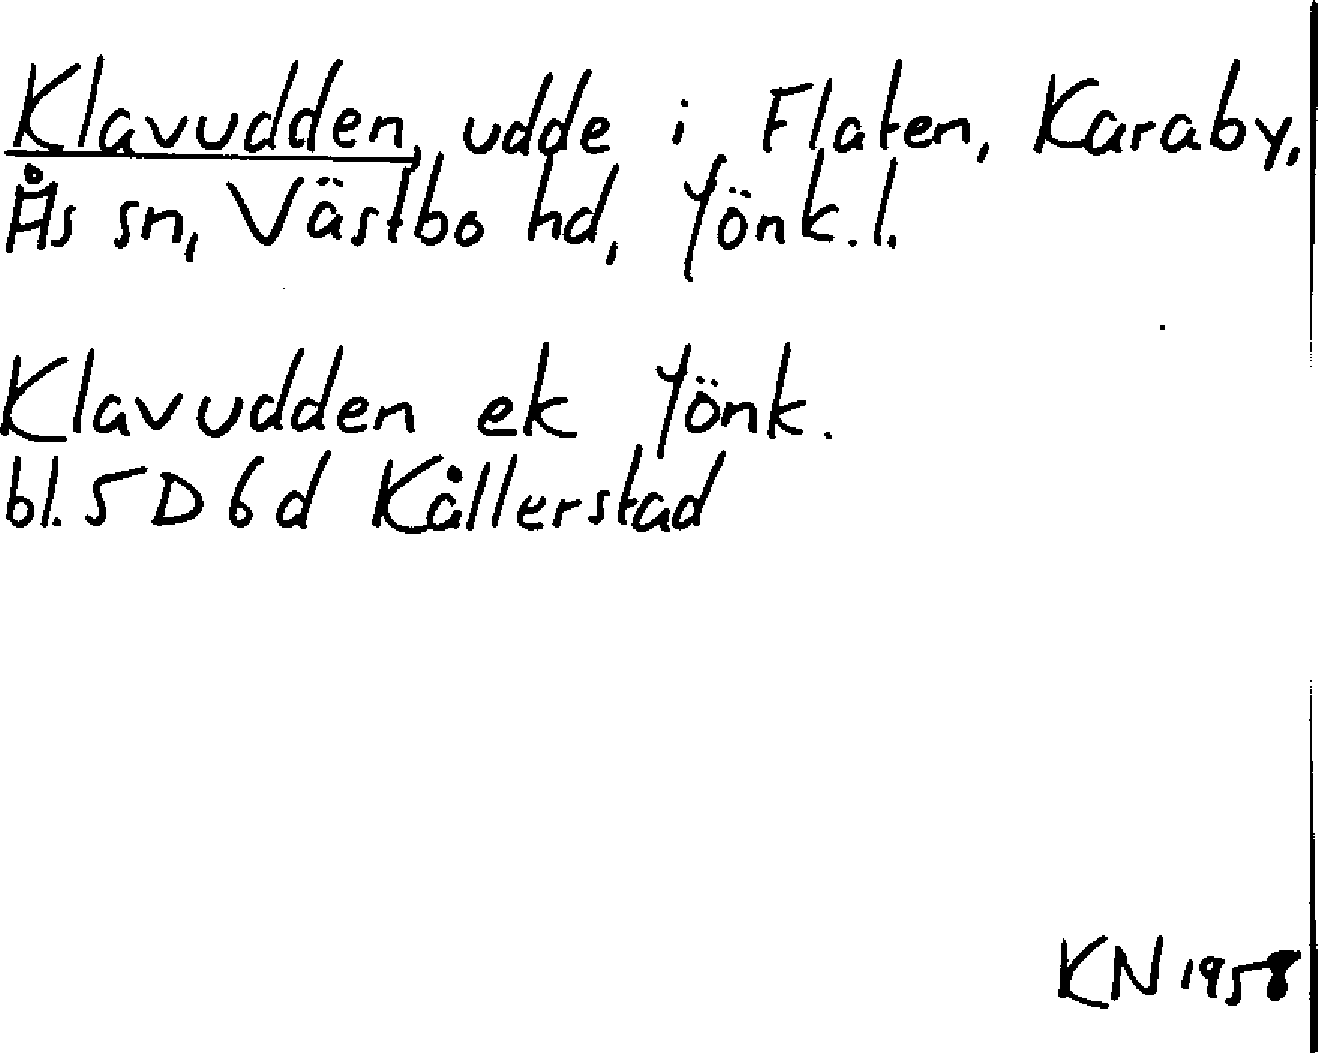 Klavudden, udde i Flaten, Karaby,
Ås sn, Västbo hd, Jönk.l.
Klavudden ek Jönk.
bl. 5D6d Kållerstad
KN 1958